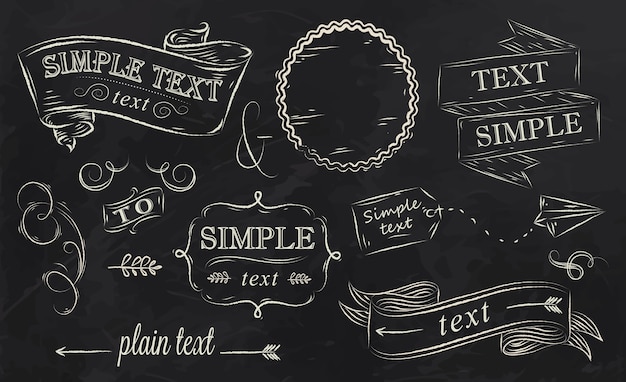 SIMPLE TEXT
text
&
TEXT
SIMPLE
TO
SIMPLE
text
Simple
text
plain text
text